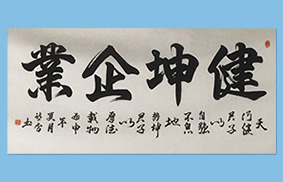 健坤企業
天行健君子以自強不息地勢坤君子以厚德載物丙申年夏月